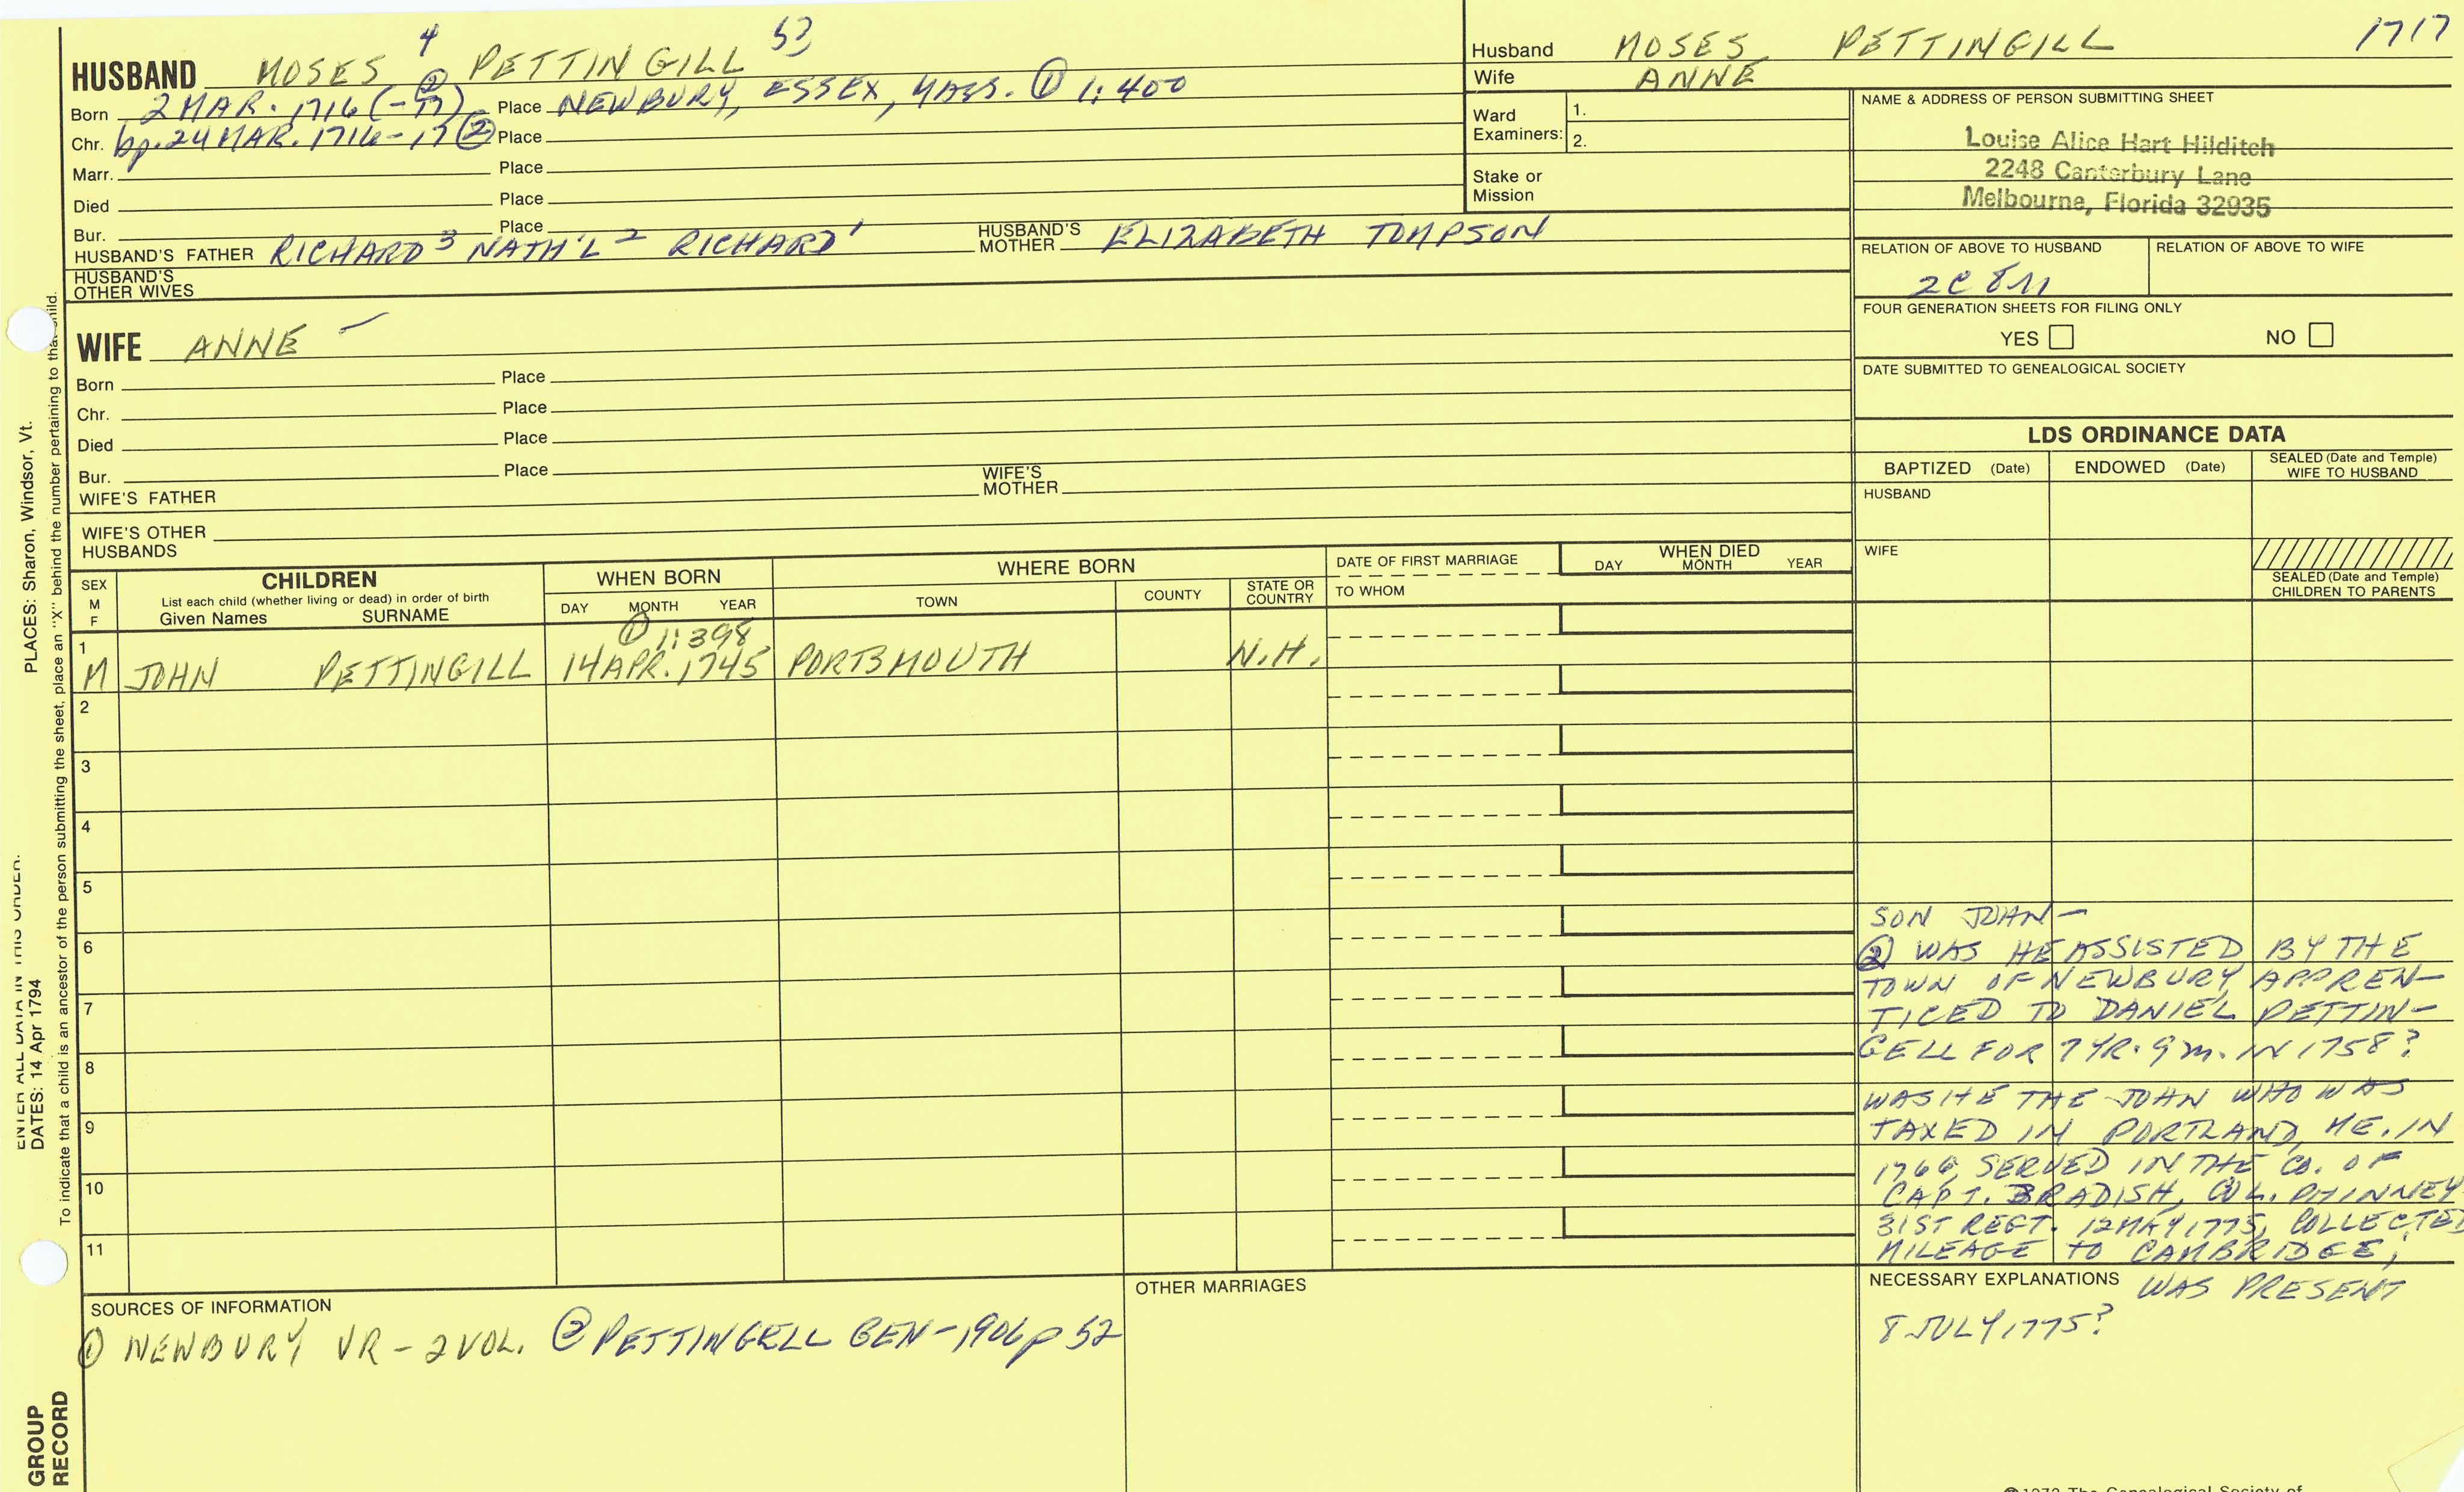 HUSBAND MOSES 4 PETTINGILL 53
Born 2 MAR. 1716 (-17) ② Place NEWBURY, ESSEX, MASS. ① 1:400
Chr. bp. 24 MAR. 1716-17 ② Place
Marr. Place
Died Place
Bur. Place
HUSBAND'S FATHER RICHARD 3 NATH'L 2 RICHARD 1 HUSBAND'S MOTHER ELIZABETH TOMPSON
HUSBAND'S
OTHER WIVES
Husband MOSES PETTINGILL 1717
Wife ANNE
Ward
Examiners:
1.
2.
Stake or
Mission
NAME & ADDRESS OF PERSON SUBMITTING SHEET
Louise Alice Hart Hilditch
2248 Canterbury Lane
Melbourne, Florida 32935
RELATION OF ABOVE TO HUSBAND
2C 8
RELATION OF ABOVE TO WIFE
FOUR GENERATION SHEETS FOR FILING ONLY
YES NO
DATE SUBMITTED TO GENEALOGICAL SOCIETY
WIFE ANNE —
Born Place
Chr. Place
Died Place
Bur. Place
WIFE'S FATHER WIFE'S MOTHER
WIFE'S OTHER
HUSBANDS
LDS ORDINANCE DATA
BAPTIZED (Date) ENDOWED (Date) SEALED (Date and Temple) WIFE TO HUSBAND
HUSBAND
WIFE
SEALED (Date and Temple)
CHILDREN TO PARENTS
SEX
M
F
CHILDREN
List each child (whether living or dead) in order of birth
Given Names SURNAME
WHEN BORN
DAY MONTH YEAR
WHERE BORN
TOWN COUNTY STATE OR COUNTRY
DATE OF FIRST MARRIAGE
TO WHOM
WHEN DIED
DAY MONTH YEAR
① 1:398
1
M JOHN PETTINGILL 14 APR. 1745 PORTSMOUTH N.H.
2
3
4
5
6
7
8
9
10
11
SON JOHN —
② WAS HE ASSISTED BY THE
TOWN OF NEWBURY APPREN-
TICED TO DANIEL PETTIN-
GELL FOR 7 YR. 9 m. IN 1758?
WAS HE THE JOHN WHO WAS
TAXED IN PORTLAND, ME. IN
1766, SERVED IN THE CO. OF
CAPT. BRADISH, COL. PHINNEY
31ST REGT. 12 MAY 1775, COLLECTED
MILEAGE TO CAMBRIDGE;
NECESSARY EXPLANATIONS WAS PRESENT
8 JULY 1775?
SOURCES OF INFORMATION
① NEWBURY VR - 2 VOL. ② PETTINGELL GEN - 1906 p 52
OTHER MARRIAGES
ENTER ALL DATA IN THIS ORDER:
DATES: 14 Apr 1794 PLACES: Sharon, Windsor, Vt.
To indicate that a child is an ancestor of the person submitting the sheet, place an "X" behind the number pertaining to that child.
GROUP
RECORD
The Genealogical Society of